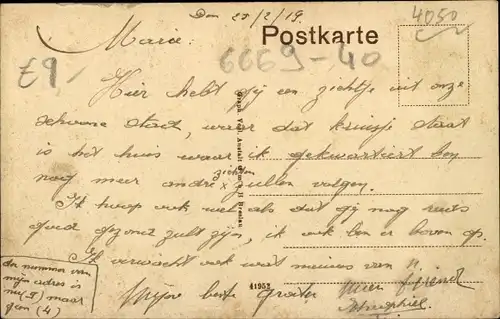 Den 25/2/19
Postkarte
4050
Marie.
6669-40
£9,-
Hier hebt gij een zichtje uit onze
schoone stad, waar dat kruisje staat
is het huis waar ik gekwartiert ben
nog meer andre zichten x zullen volgen.
Ik hoop ook wel als dat gij nog reeds
goed gezond zult zijn, ik ook ben er boven op.
Ik verwacht ook wat nieuws van u
Mijne beste groeten
Uwen friend
den nummer van
mijn adres is
nu (5) maar
geen (4)
41952